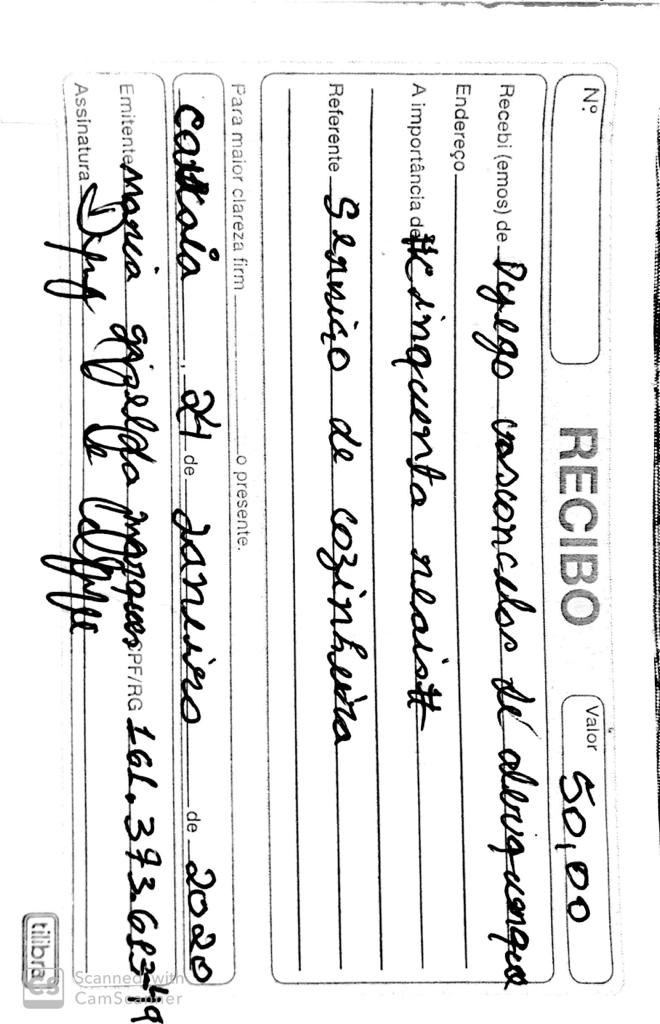 Nº RECIBO Valor 50,00
Recebi (emos) de Dyego vasconcelos de
Endereço
A importância de #Cinquenta reais#
Referente Serviço de cozinheira
Para maior clareza firm o presente.
, 21 de Janeiro de 2020
Emitente Maria marques CPF/RG
Assinatura
tilibra
Scanned with
CamScanner